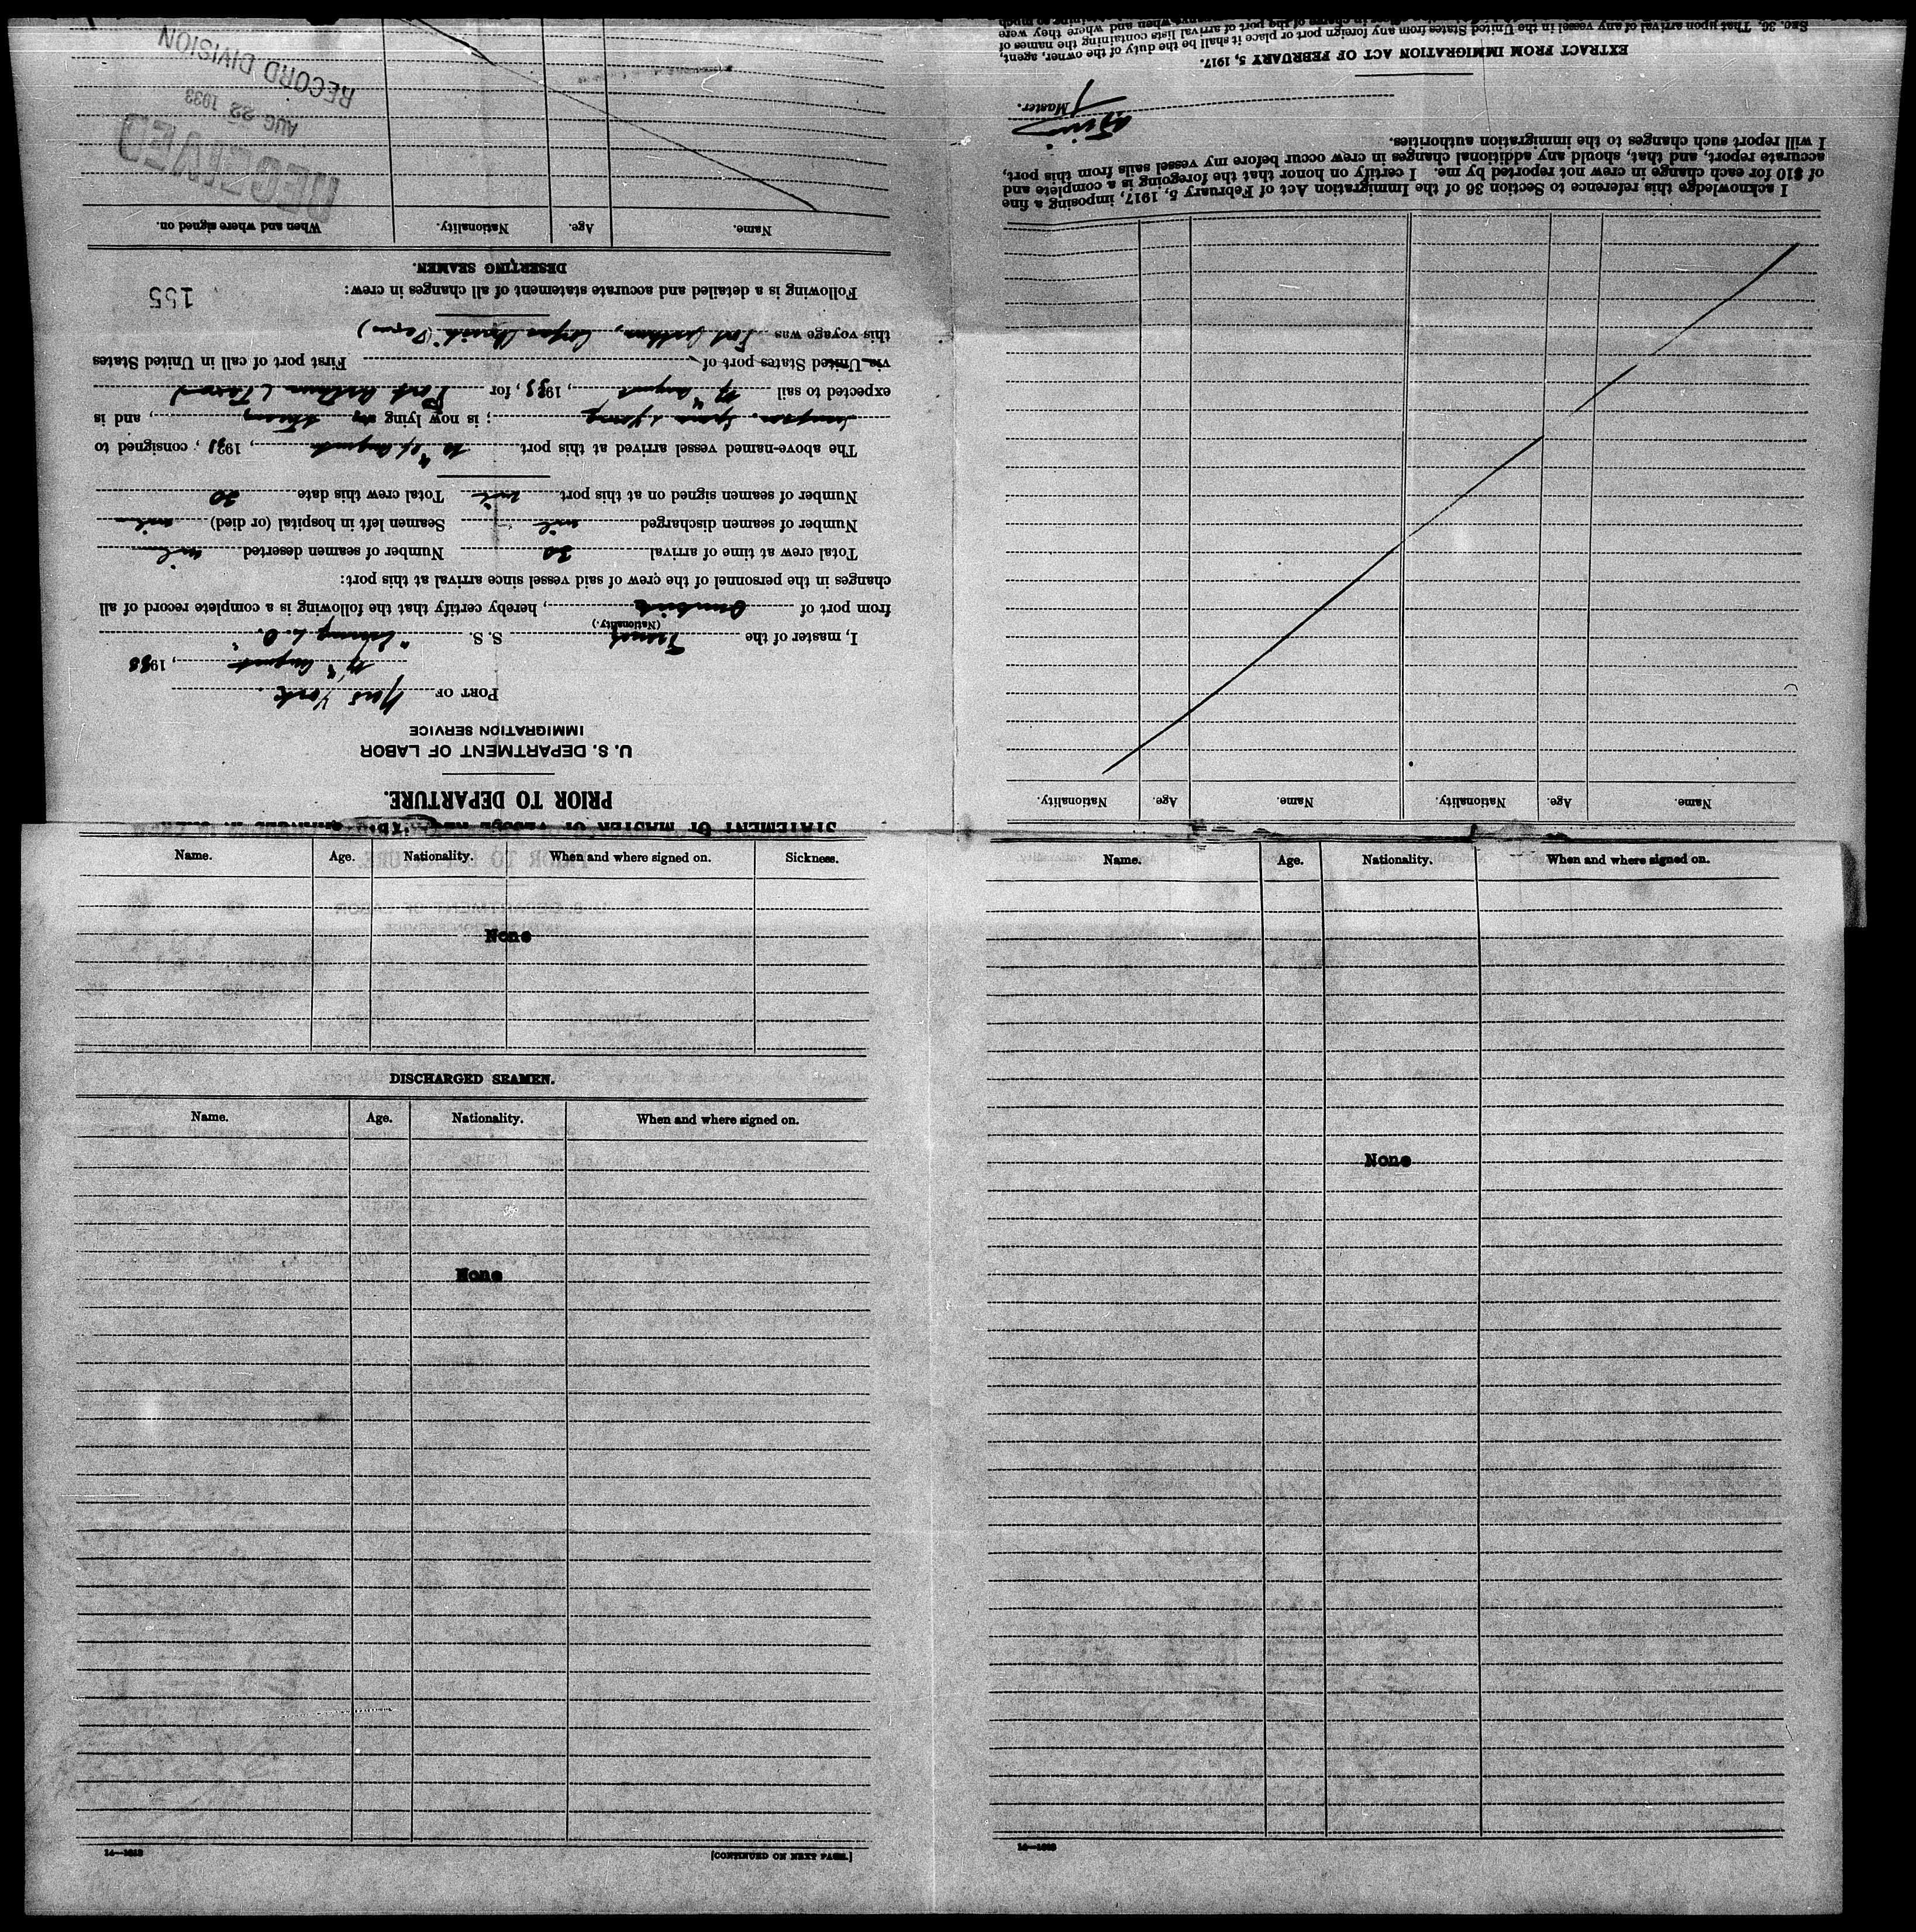 STATEMENT OF MASTER OF VESSEL REGARDING CHANGES IN CREW
PRIOR TO DEPARTURE.
U. S. DEPARTMENT OF LABOR
IMMIGRATION SERVICE
PORT OF New York
17th August, 1933
I, master of the French S. S.
(Nationality.)
from port of, hereby certify that the following is a complete record of all
changes in the personnel of the crew of said vessel since arrival at this port:
Total crew at time of arrival 30 Number of seamen deserted nil
Number of seamen discharged nil Seamen left in hospital (or died) nil
Number of seamen signed on at this port nil Total crew this date 30
The above-named vessel arrived at this port of August, 1933, consigned to
; is now lying, and is
expected to sail 17th August, 1933, for Port Arthur (Texas)
via United States port of First port of call in United States
this voyage was Port Arthur, Corpus Christi (Texas)
Following is a detailed and accurate statement of all changes in crew:
155
DESERTING SEAMEN.
Name. Age. Nationality. When and where signed on.
RECEIVED
AUG 22 1933
RECORD DIVISION
Name. Age. Nationality. Name. Age. Nationality.
I acknowledge this reference to Section 36 of the Immigration Act of February 5, 1917, imposing a fine
of $10 for each change in crew not reported by me. I certify on honor that the foregoing is a complete and
accurate report, and that, should any additional changes in crew occur before my vessel sails from this port,
I will report such changes to the immigration authorities.
Master.
EXTRACT FROM IMMIGRATION ACT OF FEBRUARY 5, 1917.
SEC. 36. That upon arrival of any vessel in the United States from any foreign port or place it shall be the duty of the owner, agent,
of the port of arrival lists containing the names of
when and where they were
Name. Age. Nationality. When and where signed on. Sickness.
None
DISCHARGED SEAMEN.
Name. Age. Nationality. When and where signed on.
None
14—1243
[CONTINUED ON NEXT PAGE.]
Name. Age. Nationality. When and where signed on.
None